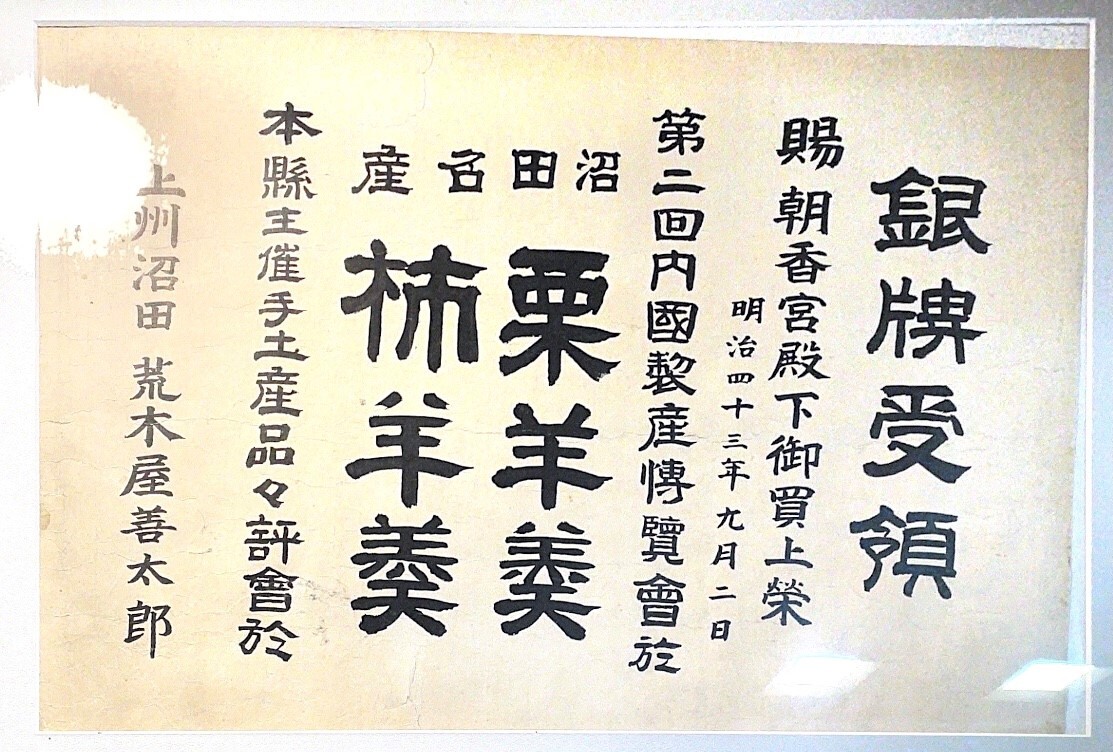 銀牌受領
賜朝香宮殿下御買上榮
明治四十三年九月二日
第二回内國製産博覽會於
沼田名産
栗羊羹
柿羊羹
本縣主催手土産品々評會於
上州沼田 荒木屋善太郎